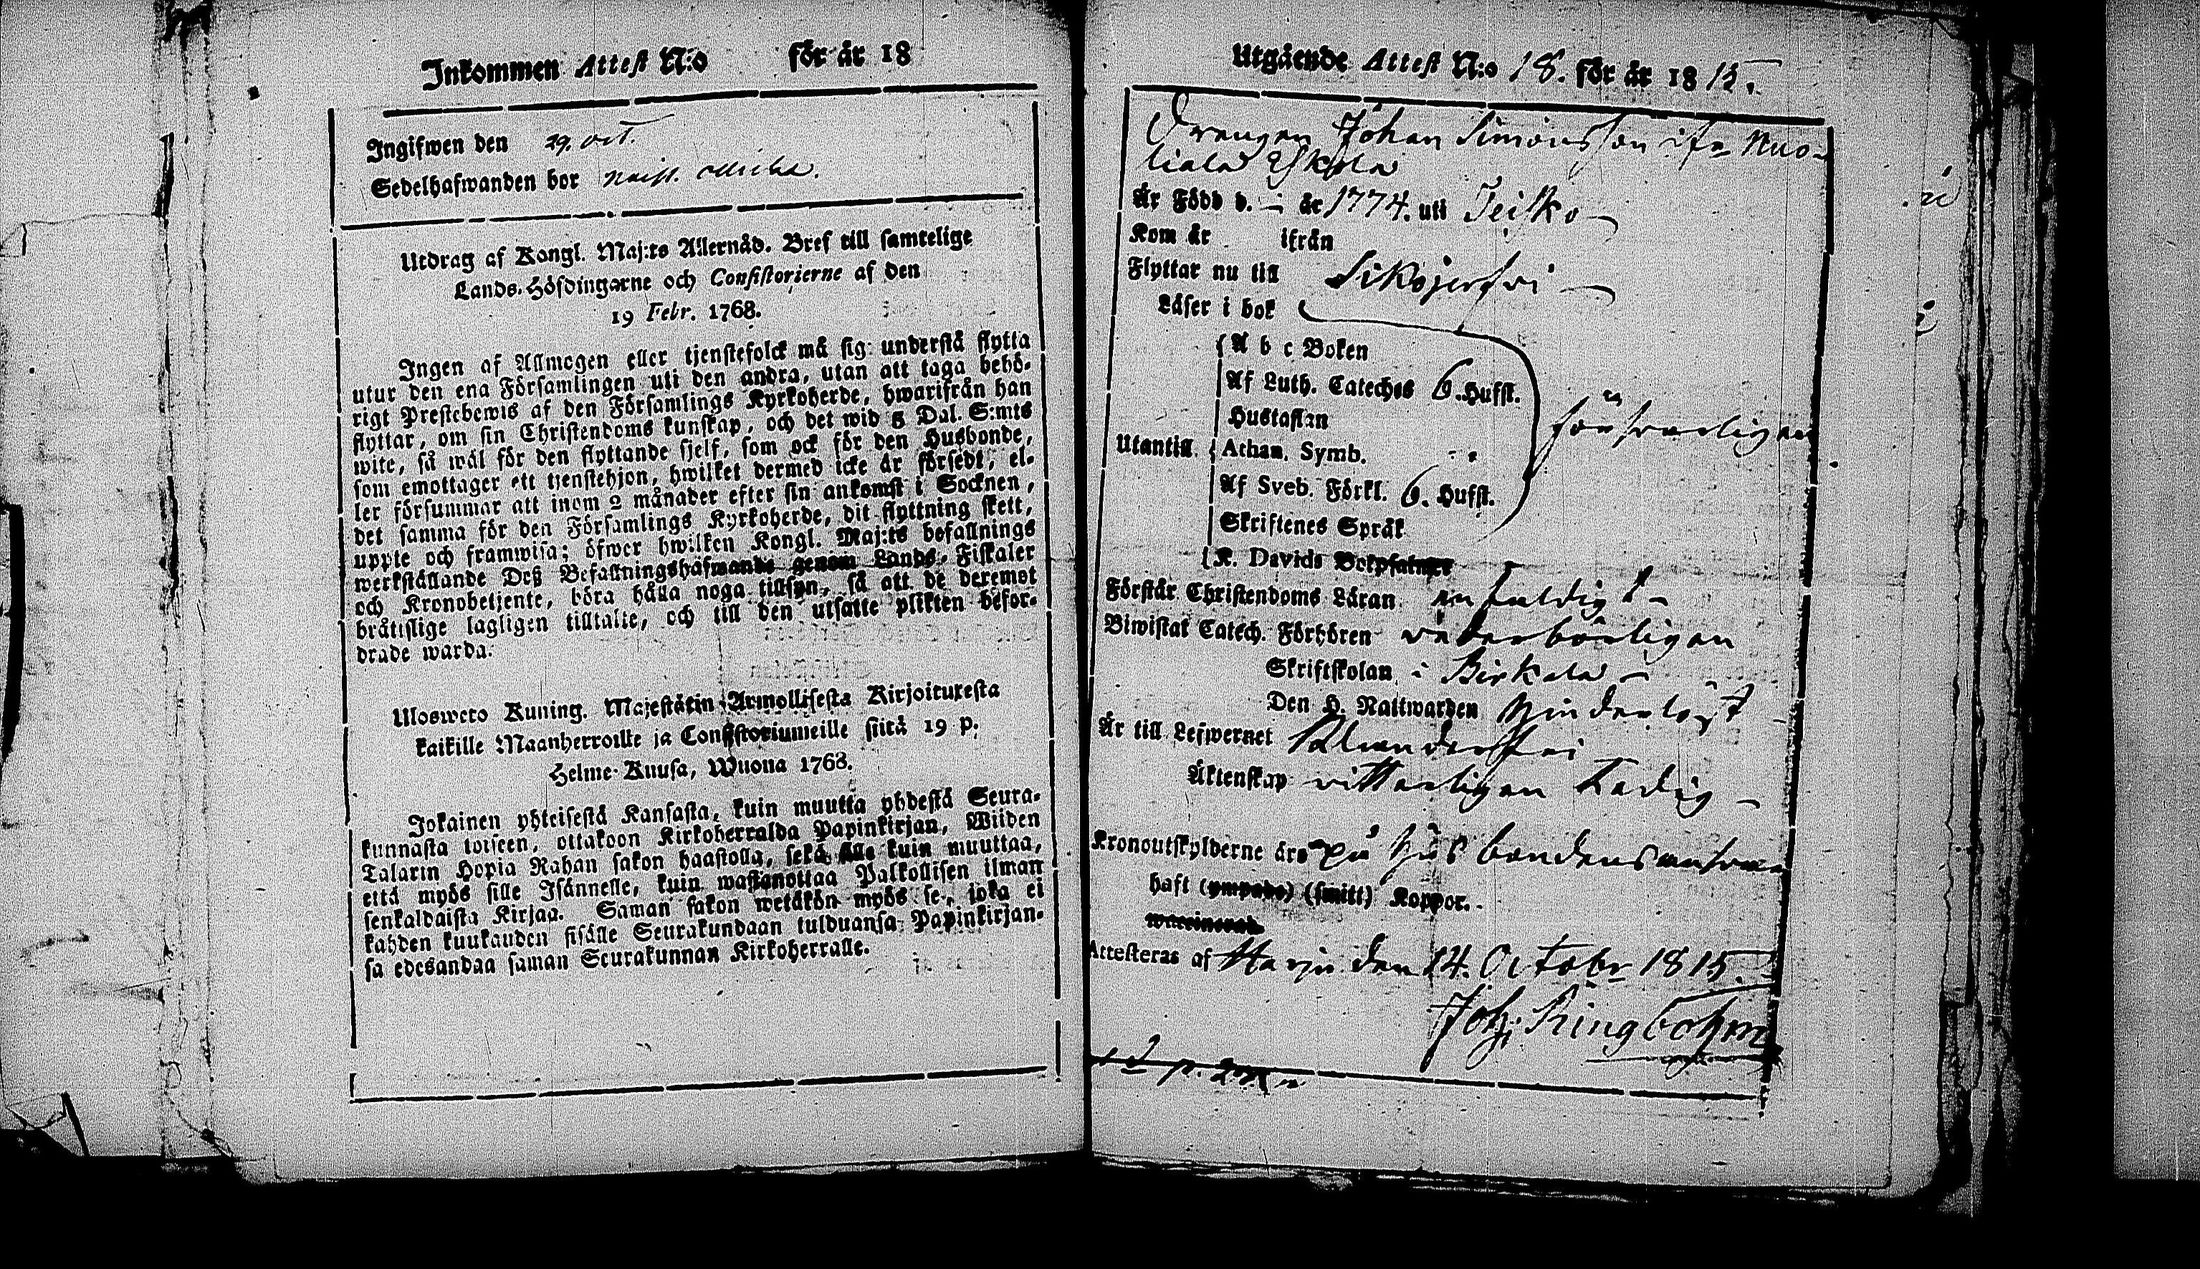 Inkommen Attest N:o för år 18
Ingifwen den 29. oct.
Sedelhafwanden bor
Utdrag af Kongl. Maj:ts Allernåd. Bref till samtelige
Lands-Höfdingarne och Consistorierne af den
19 Febr. 1768.
Ingen af Allmogen eller tjenstefolck må sig understå flytta
utur den ena Församlingen uti den andra, utan att taga behö-
rigt Prestebewis af den Församlings Kyrkoherde, hwarifrån han
flyttar, om sin Christendoms kunskap, och det wid 5 Dal. S:mts
wite, så wäl för den flyttande sjelf, som ock för den Husbonde,
som emottager ett tjenstehjon, hwilket dermed icke är försedt, el-
ler försummar att inom 2 månader efter sin ankomst i Socknen,
det samma för den Församlings Kyrkoherde, dit flyttning skett,
uppte och framwisa; öfwer hwilken Kongl. Maj:ts befallnings
werkställande Deß Befallningshafwande genom Lands-Fiskaler
och Kronobetjente, böra hålla noga tillsyn, så att de deremot
bråttslige lagligen tilltalte, och till den utsatte plikten befor-
drade warda.
Ulosweto Kuning. Majestätin Armollisesta Kirjoituxesta
kaikille Maanherroille ja Consistoriumeille siitä 19 p.
Helme-Kuusa, Wuona 1768.
Jokainen yhteisestä Kansasta, kuin muutta yhdestä Seura-
kunnasta toiseen, ottakoon Kirkoherralda Papinkirjan, Wiiden
Talarin Hopia Rahan sakon haastolla, sekä sille kuin muuttaa,
että myös sille Isännelle, kuin wastanottaa Palkollisen ilman
senkaldaista Kirjaa. Saman sakon wetäkön myös se, joka ei
kahden kuukauden sisälle Seurakundaan tulduansa Papinkirjan-
sa edesandaa saman Seurakunnan Kirkoherralle.
Utgående Attest N:o 18. för år 1815.
Drengen Johan Simonsson ifr. Nuo-
liala Yskola
Är Född d. — år 1774. uti Teisko —
Kom år ifrån
Flyttar nu till Sikojerfvi —
Läser i bok
A b c Boken
Af Luth. Cateches 6. Hufst.
Hustaflan
försvarligen
Utantill Athan. Symb.
Af Sveb. Förkl. 6. Hufst.
Skriftenes Språk
K. Davids Botpsalmer
Förstår Christendoms Läran enfaldigt —
Biwistat Catech. Förhören vederbörligen
Skriftskolan i Birkala —
Den H. Nattwarden hinderlöst
Är till Lefwernet klanderfri
Äktenskap vitterligen Ledig —
Kronoutskylderne äro på husbondens ansvar
haft (ympade) (smitt) Koppor.
waccinerad
Attesteras af Harju den 14. Octobr 1815.
Joh: Ringbohm